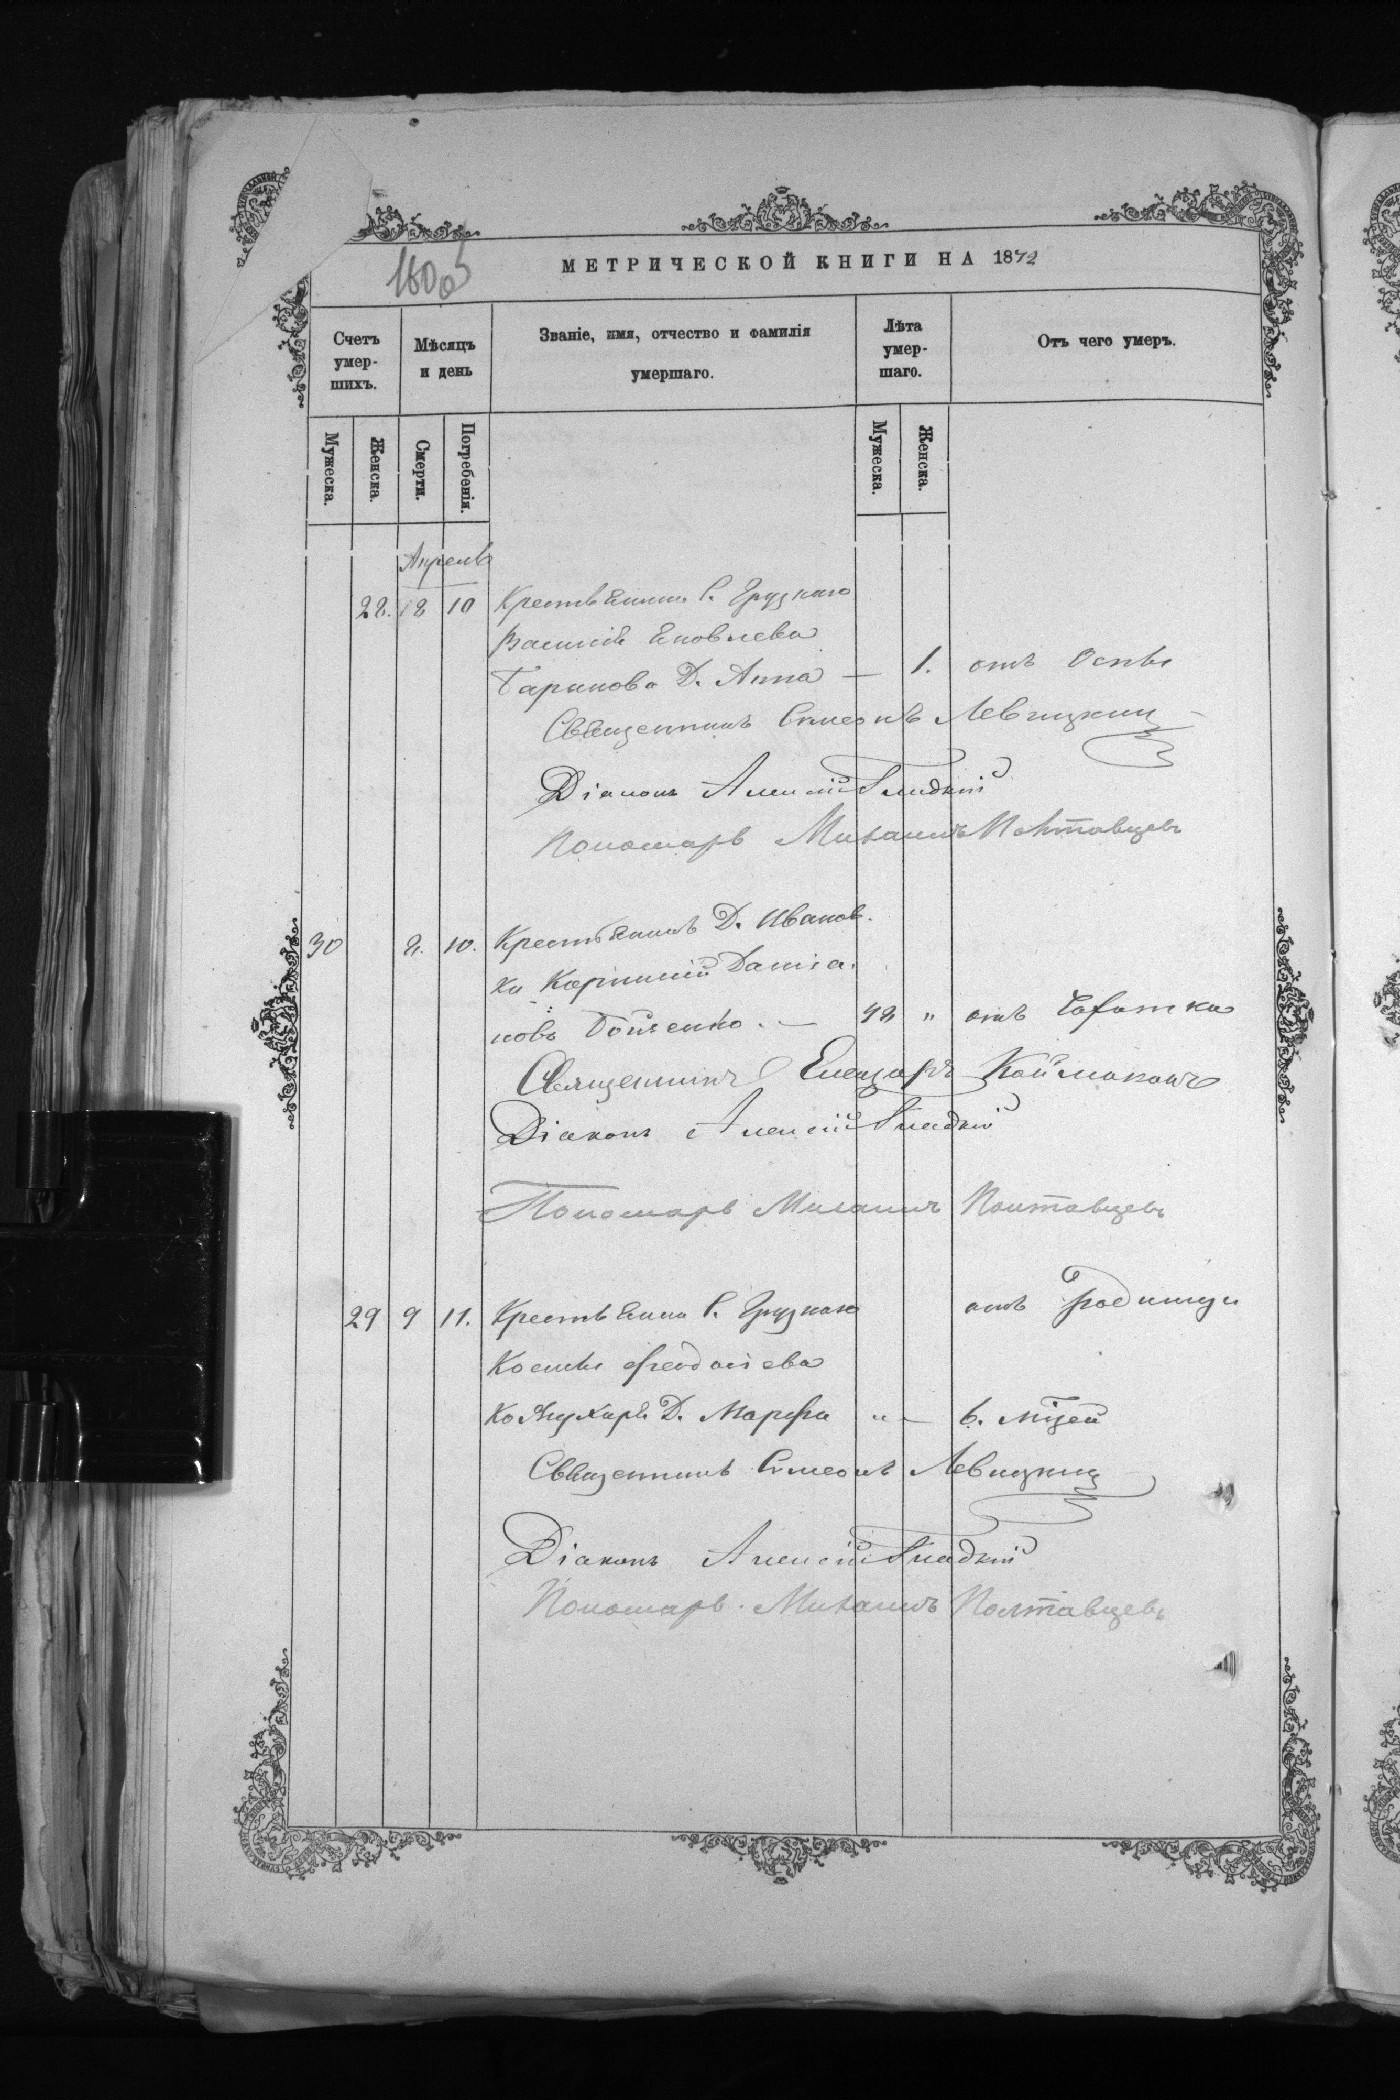 МЕТРИЧЕСКОЙ КНИГИ НА 1872
Счетъ умер-шихъ.
Мѣсяцъ и день
Званіе, имя, отчество и фамилія умершаго.
Лѣта умер-шаго.
Отъ чего умеръ.
Мужеска.
Женска.
Смерти.
Погребенія.
Мужеска.
Женска.
Апрель
28. 8 10 Крестьянина С. Грузкаго
Василія Яковлева
Баринова Д. Анна — 1. отъ Оспы
Священникъ Симеонъ Левицкий
Діаконъ Алексій Гладкій
Пономарь Михаилъ Полтавцевъ
30 8. 10. Крестьянинъ Д. Иванов.
ки Корнилій Даміа.
новъ Бойченко. — 48 " отъ
Священникъ Елеазаръ Каймаканъ
Діаконъ Алексій Гладкій
Пономарь Михаилъ Полтавцевъ
29 9 11. Крестьянина С. Грузкаго отъ Родимца
Косьмы Феодосіева
Д. Марфа " — 6. мцей
Священникъ Симеонъ Левицкий
Діаконъ Алексій Гладкій
Пономарь Михаилъ Полтавцевъ